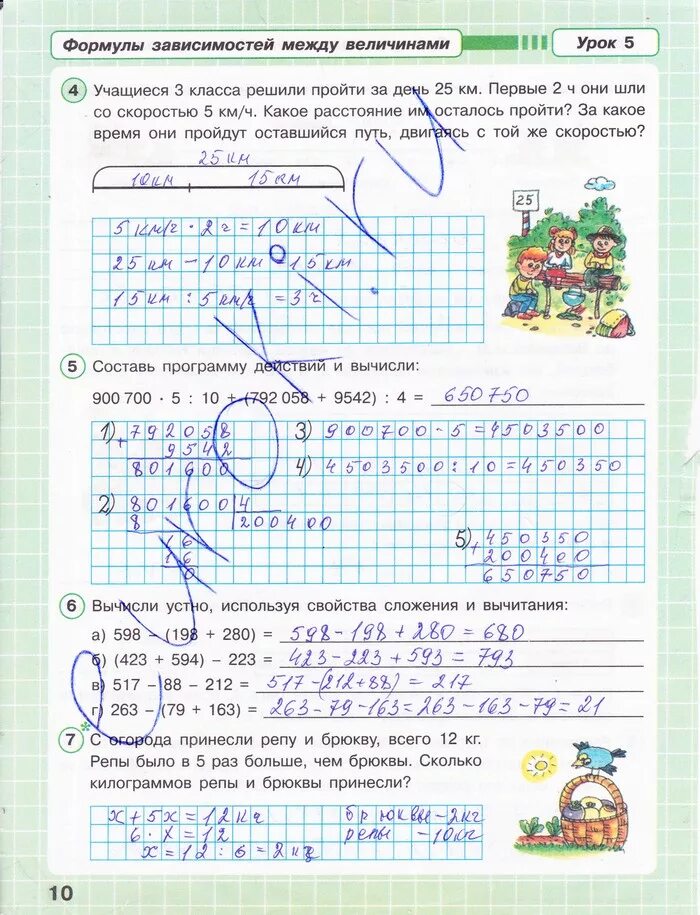 Формулы зависимостей между величинами
Урок 5
4 Учащиеся 3 класса решили пройти за день 25 км. Первые 2 ч они шли
со скоростью 5 км/ч. Какое расстояние им осталось пройти? За какое
время они пройдут оставшийся путь, двигаясь с той же скоростью?
25 км
10 км 15 км
25
5 км/ч · 2 ч = 10 км
25 км – 10 км = 15 км
15 км : 5 км/ч = 3 ч
5 Составь программу действий и вычисли:
900 700 · 5 : 10 + (792 058 + 9542) : 4 = 650750
1) 792058
+ 9542
801600
3) 900700 · 5 = 4503500
4) 4503500 : 10 = 450350
2) 801600 4
8 200400
16
16
0
5) 450350
+ 200400
650750
6 Вычисли устно, используя свойства сложения и вычитания:
а) 598 – (198 + 280) = 598 – 198 + 280 = 680
б) (423 + 594) – 223 = 423 – 223 + 593 = 793
в) 517 – 88 – 212 = 517 – (212 + 88) = 217
г) 263 – (79 + 163) = 263 – 79 – 163 = 263 – 163 – 79 = 21
7* С огорода принесли репу и брюкву, всего 12 кг.
Репы было в 5 раз больше, чем брюквы. Сколько
килограммов репы и брюквы принесли?
х + 5х = 12 кг брюквы – 2 кг
6 · х = 12 репы – 10 кг
х = 12 : 6 = 2 кг
10